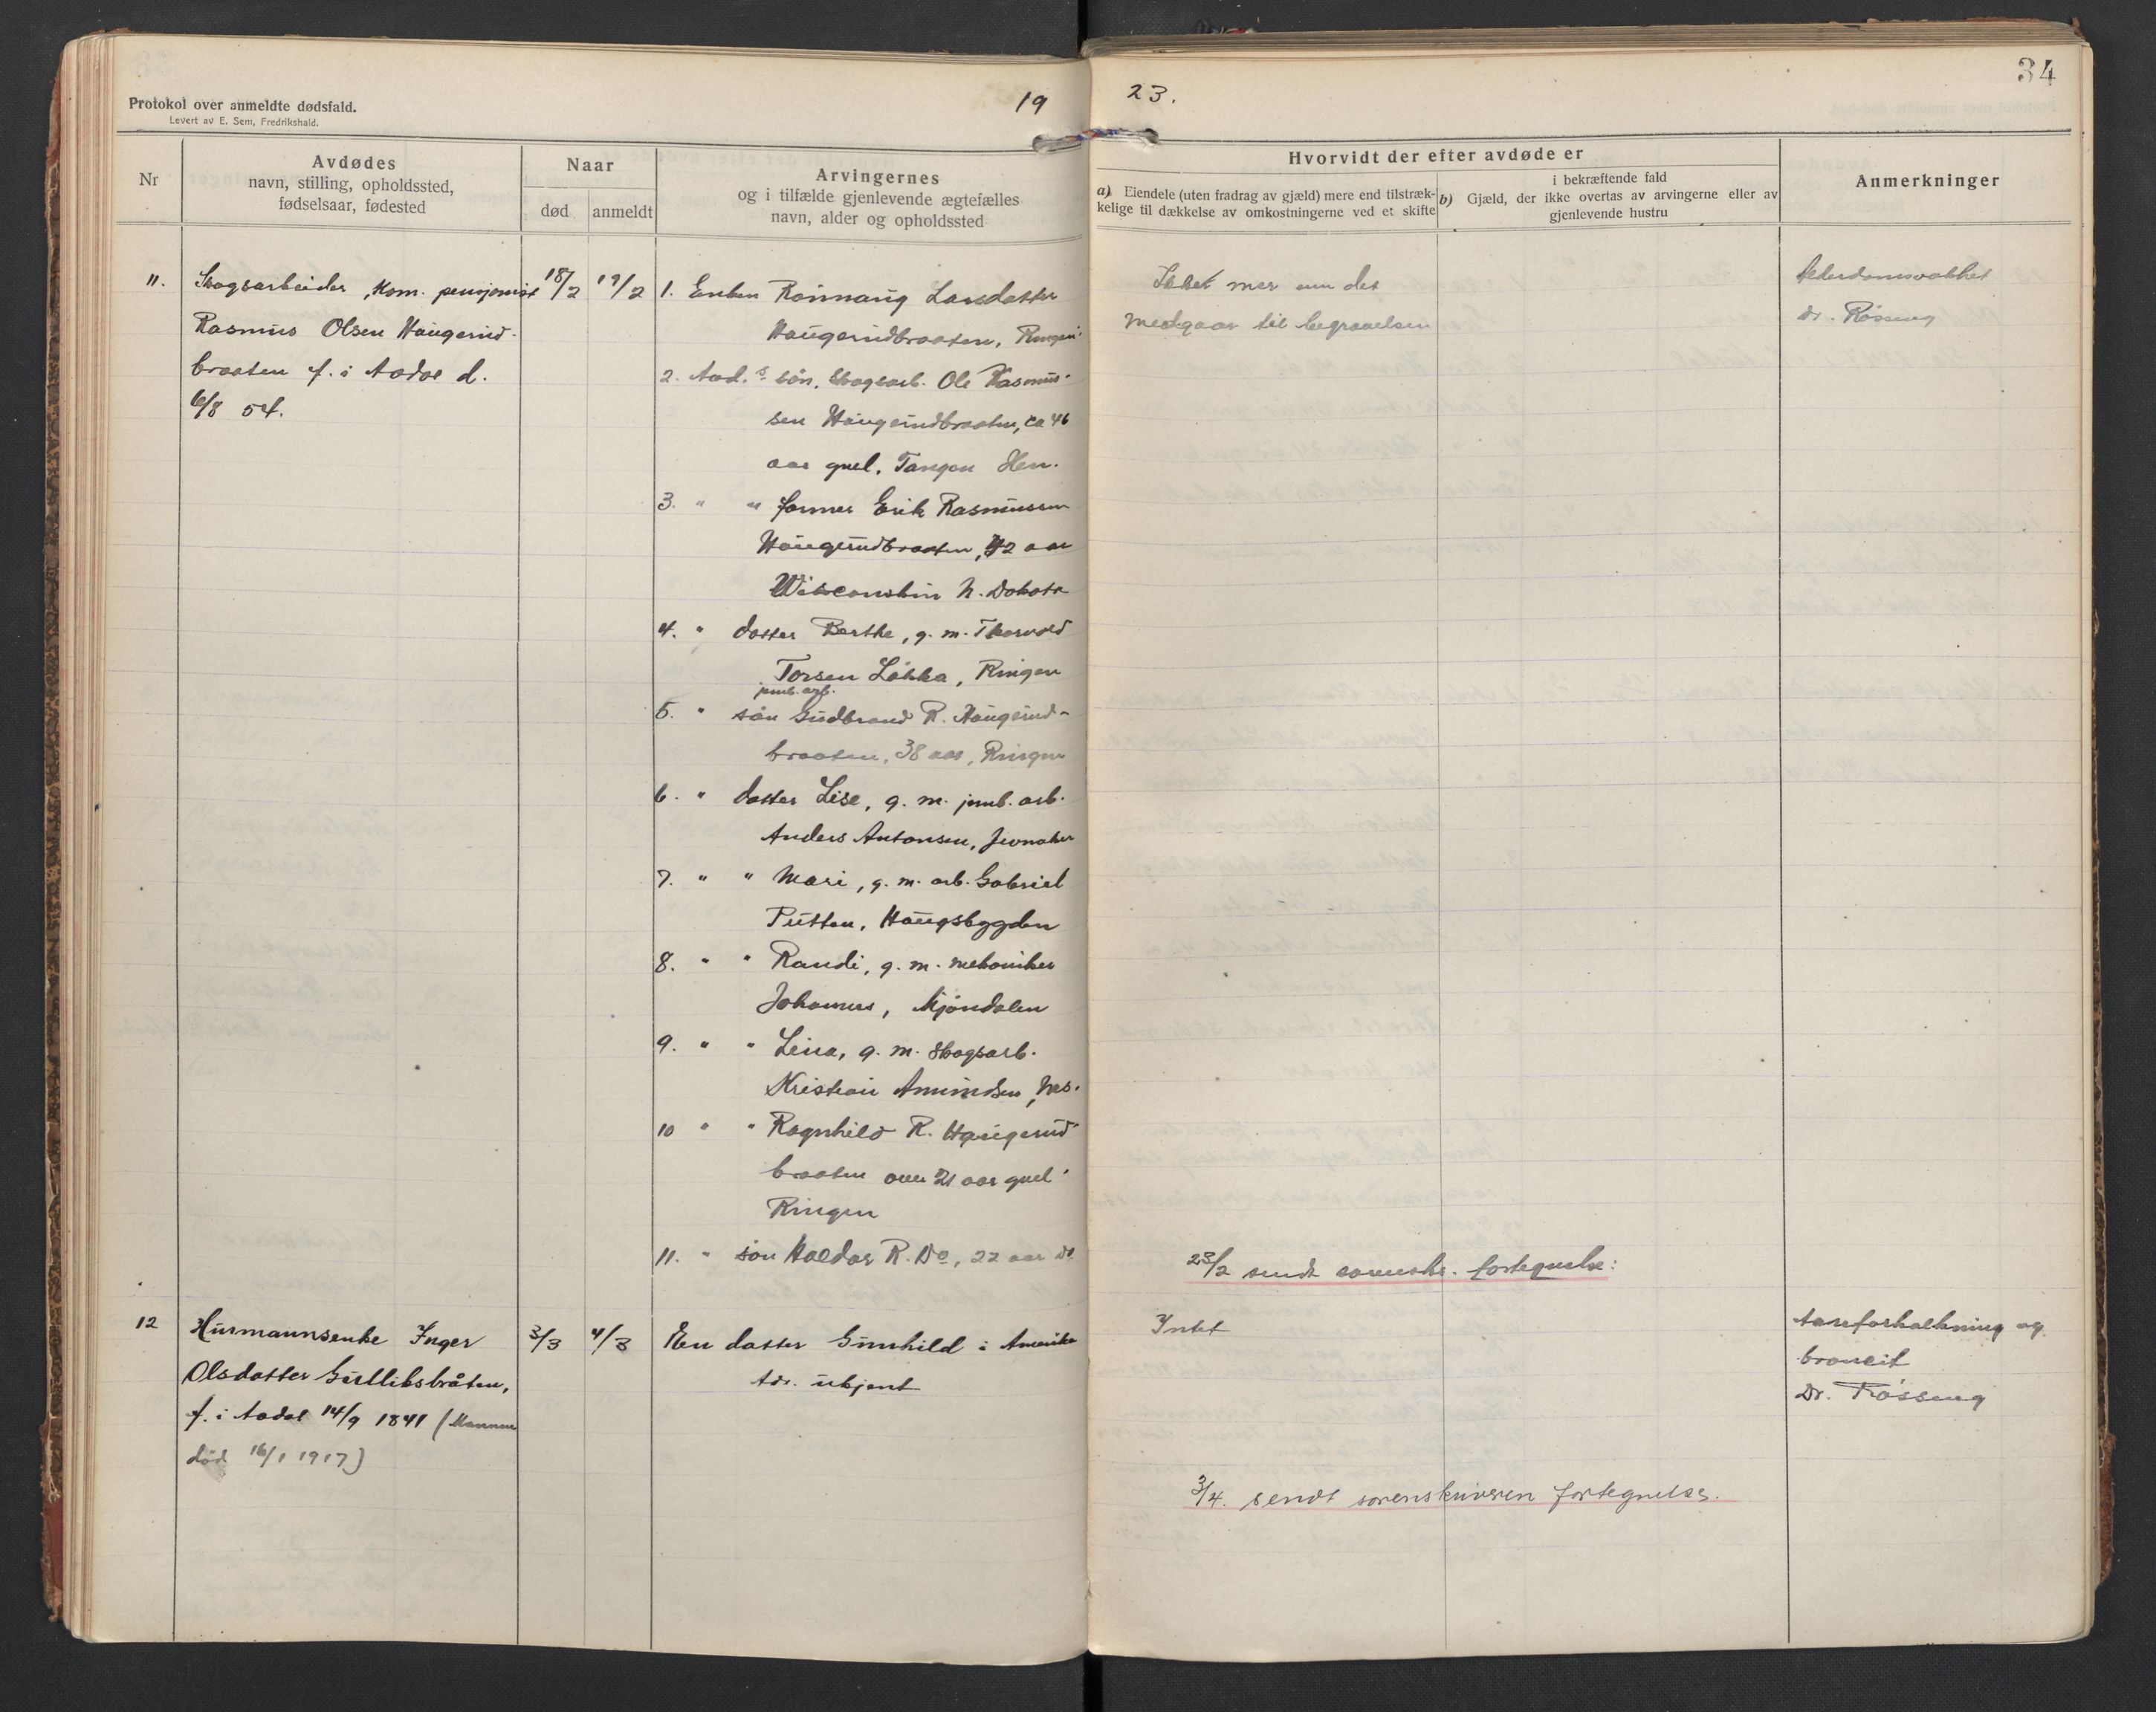 34
Protokol over anmeldte dødsfald.
Levert av E. Sem, Fredrikshald.
19 23.
Nr
Avdødes
navn, stilling, opholdssted,
fødselsaar, fødested
Naar
død
anmeldt
Arvingernes
og i tilfælde gjenlevende ægtefælles
navn, alder og opholdssted
Hvorvidt der efter avdøde er
a) Eiendele (uten fradrag av gjæld) mere end tilstræk-
kelige til dækkelse av omkostningerne ved et skifte
i bekræftende fald
b) Gjæld, der ikke overtas av arvingerne eller av
gjenlevende hustru
Anmerkninger
11.
Skogsarbeider, kom. pensjonist
Rasmus Olsen Haugerud-
braaten f. i Aadal d.
6/8 54.
18/2
19/2
1. Enken Rønnaug Larsdatter
Haugerudbraaten, Ringen.
2. Avd.s søn, skogsarb. Ole Rasmus-
sen Haugerudbraaten, ca 46
aar gml. Tangen Hen.
3. " " farmer Erik Rasmussen
Haugerudbraaten, 42 aar
Wisconshin N. Dakota
4. " datter Berthe, g. m. Thorvald
Torsen Løkka, Ringen
jernb. arb.
5. " søn Gudbrand R. Haugerud-
braaten, 38 aar, Ringen
6. " datter Lise, g. m. jernb. arb.
Anders Antonsen, Jevnaker
7. " " Mari, g. m. arb. Gabriel
Putten, Haugsbygden
8. " " Randi, g. m. mekaniker
Johannes, Mjøndalen
9. " " Lina, g. m. skogsarb.
Kristian Amundsen, Nes.
10 " " Ragnhild R. Haugerud-
braaten over 21 aar gml.
Ringen
11. " søn Haldor R. Do, 22 aar Do
Ikke mer enn det
medgaar til begravelsen
Alderdomssvakhet
Dr. Røssung
23/2 sendt sorenskr. fortegnelse:
12
Husmannsenke Inger
Olsdatter Gulliksbråten,
f. i Aadal 14/9 1841 (Mannen
død 16/1 1917)
3/3
4/3
En datter Gunhild i Amerika
Adr. ukjent
Intet
Aareforkalkning og
bronkit
Dr. Røssung
3/4. sendt sorenskriveren fortegnelse.